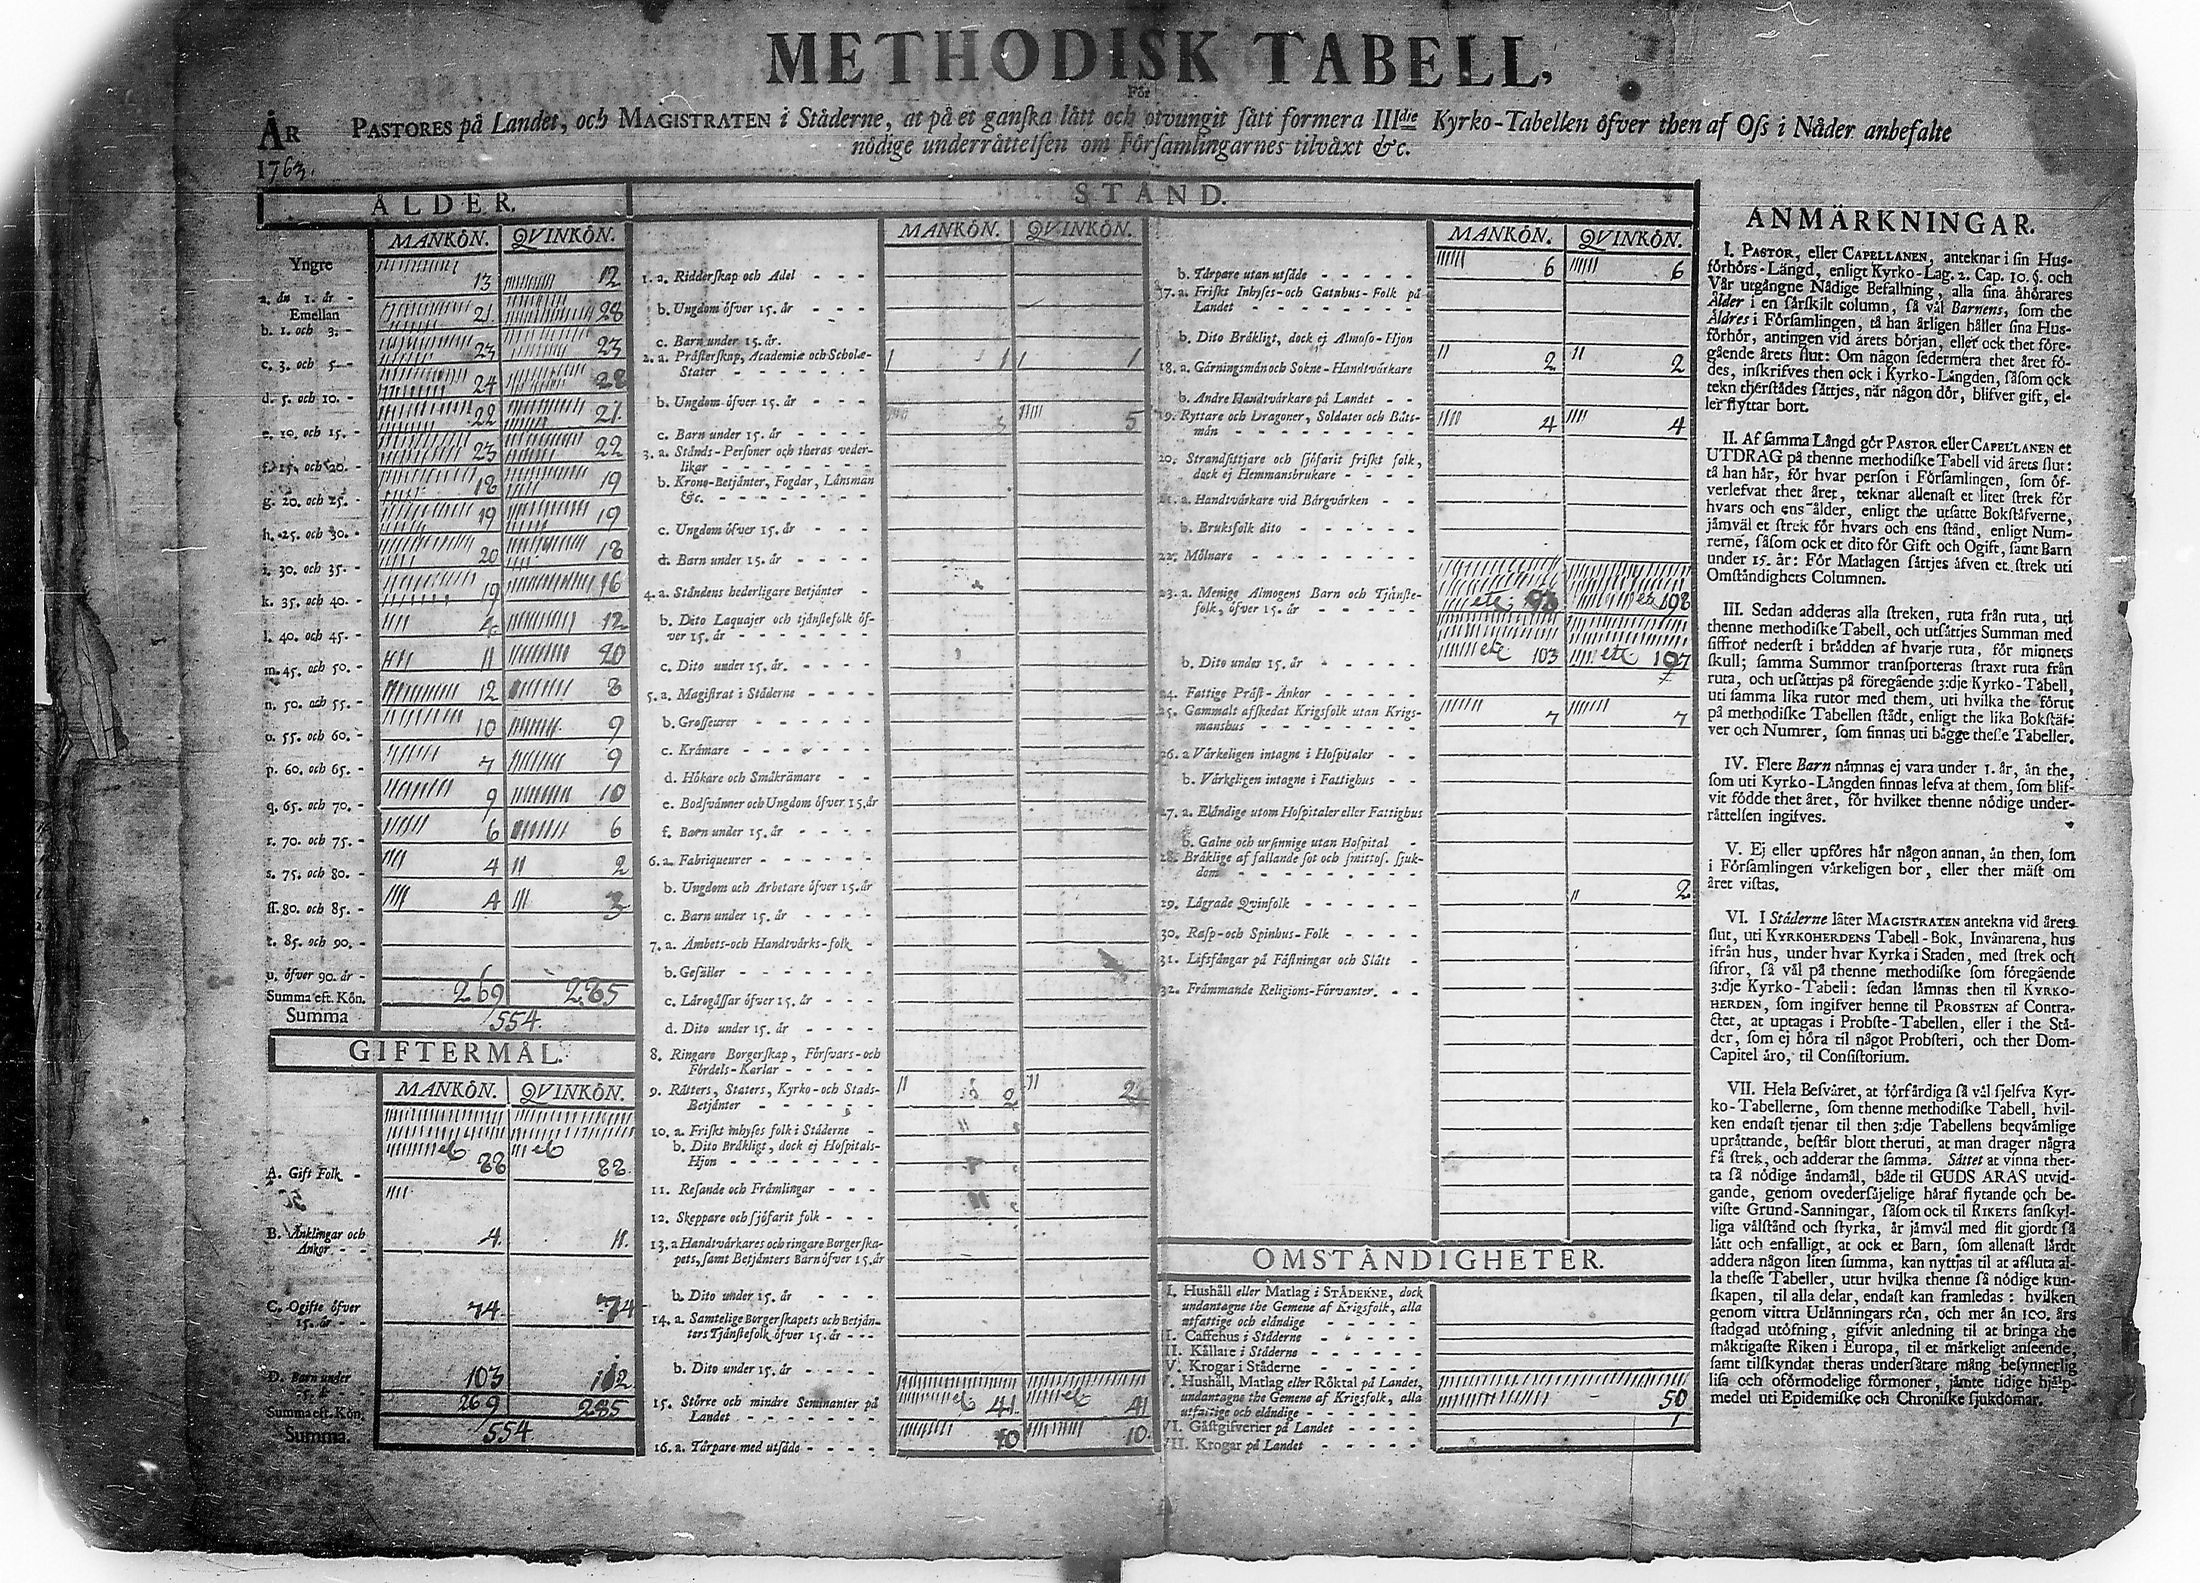 METHODISK TABELL,
För
ÅR PASTORES på Landet, och MAGISTRATEN i Städerne, at på et ganſka lått och otvungit ſått formera IIIdie Kyrko-Tabellen öfver then af Oſs i Nåder anbefalte
1763. nödige underråttelſen om Förſamlingarnes tilvåxt &c.
ÅLDER.
MANKÖN. QVINKÖN.
Yngre
a. ån 1. år - 13 12
Emellan
b. 1. och 3. - 21 28
c. 3. och 5 - 23 23
d. 5. och 10. - 24 28
e. 10 och 15. - 22 21
f. 15. och 20. - 23 22
g. 20. och 25. - 18 19
h. 25. och 30. - 19 19
i. 30. och 35. - 20 18
k. 35. och 40. - 19 16
l. 40. och 45. - 4 12
m. 45. och 50. - 11 20
n. 50. och 55. - 12 8
o. 55. och 60. - 10 9
p. 60. och 65. - 7 9
q. 65. och 70. - 9 10
r. 70. och 75. - 6 6
s. 75. och 80. - 4 2
ſſ. 80. och 85. - 4 3
t. 85. och 90. -
u. öfver 90. år -
Summa eft. Kön. 269 285
Summa 554.
GIFTERMÅL.
MANKÖN. QVINKÖN.
A. Gift Folk - etc 88 etc 88.
B. Änklingar och
Änkor. - - 4. 11.
C. Ogifte öfver
15. år - - 74. 74
D. Barn under
15. år 103 112
Summa eft. Kön. 269 285
Summa. 554.
STÅND.
MANKÖN. QVINKÖN.
1. a. Ridderſkap och Adel - - -
b. Ungdom öfver 15. år - - -
c. Barn under 15. år.
2. a. Pråſterſkap, Academiæ och Scholæ-
Stater - - - - - - - 1 1
b. Ungdom öfver 15. år - - -
c. Barn under 15. år - - - - 5
3. a. Stånds-Perſoner och theras veder-
likar - - - - - - - -
b. Krono-Betjånter, Fogdar, Lånsmån
&c. - - - - - - - -
c. Ungdom öfver 15. år - - -
d. Barn under 15. år - - - -
4. a. Ståndens hederligare Betjånter -
b. Dito Laquajer och tjånſtefolk öf-
ver 15. år - - - - - -
c. Dito under 15. år. - - - -
5. a. Magiſtrat i Ståderne - - - -
b. Groſſeurer - - - - - -
c. Kråmare - - - - - -
d. Hökare och Småkråmare - -
e. Bodſvånner och Ungdom öfver 15. år
f. Barn under 15. år - - - -
6. a. Fabriqueurer - - - - - -
b. Ungdom och Arbetare öfver 15. år
c. Barn under 15. år - - - -
7. a. Åmbets-och Handtvårks-folk -
b. Geſåller - - - - - - -
c. Lårogåſſar öfver 15. år - - -
d. Dito under 15. år - - - -
8. Ringare Borgerſkap, Förſvars-och
Fördels-Karlar - - - - -
9. Råtters, Staters, Kyrko-och Stads-
Betjånter - - - - - - 2 2
10. a. Friſkt inhyſes folk i Ståderne -
b. Dito Bråkligt, dock ej Hoſpitals-
Hjon - - - - - - - -
11. Reſande och Fråmlingar - - -
12. Skeppare och ſjöfarit folk - - -
13. a Handtvårkares och ringare Borgerſka-
pets, ſamt Betjånters Barn öfver 15. år
b. Dito under 15. år - - -
14. a. Samtelige Borgerſkapets och Betjån-
ters Tjånſtefolk öfver 15. år - - -
b. Dito under 15. år - - - -
15. Större och mindre Hemmanter på
Landet - - - - - - - etc 41. etc 41
16. a. Torpare med utſåde - - - - 10 10.
MANKÖN. QVINKÖN.
b. Torpare utan utſåde - - - - - 6 6
17. a. Friſkt Inhyſes-och Gatuhus-Folk på
Landet - - - - - - -
b. Dito Bråkligt, dock ej Almoſo-Hjon
18. a. Gårningsmån och Sokne-Handtvårkare 2 2
b. Andre Handtvårkare på Landet - -
19. Ryttare och Dragoner, Soldater och Båts-
mån - - - - - - - - 4 4
20. Strandſittjare och ſjöfarit friſkt folk,
dock ej Hemmansbrukare - - - -
21. a. Handtvårkare vid Bårgvårken - -
b. Bruksfolk dito - - - - -
22. Mölnare - - - - - - - -
23. a. Menige Almogens Barn och Tjånſte-
folk, öfver 15. år - - - - - etc 93 etc 98
b. Dito under 15. år - - - - - etc 103 etc 107
24. Fattige Pråſt-Änkor - - - - -
25. Gammalt afſkedat Krigsfolk utan Krigs-
manshus - - - - - - - 7 7
26. a Vårkeligen intagne i Hoſpitaler - -
b. Vårkeligen intagne i Fattighus - -
27. a. Elåndige utom Hoſpitaler eller Fattighus
b. Galne och urſinnige utan Hoſpital -
28. Bråklige af fallande ſot och ſmittoſ. ſjuk-
dom - - - - - - - -
29. Lågrade Qvinfolk - - - - - - 2
30. Raſp-och Spinhus-Folk - - - -
31. Lifsfångar på Fåſtningar och Slått -
32. Fråmmande Religions-Förvanter. - -
OMSTÅNDIGHETER.
I. Hushåll eller Matlag i STÅDERNE, dock
undantagne the Gemene af Krigsfolk, alla
utfattige och elåndige - - - -
II. Caffehus i Ståderne - - - - -
III. Kållare i Ståderne - - - - -
IV. Krogar i Ståderne - - - - -
V. Hushåll, Matlag eller Röktal på Landet,
undantagne the Gemene af Krigsfolk, alla
utfattige och elåndige - - - - - 50
VI. Gåſtgifverier på Landet - - - - 1
VII. Krogar på Landet - - - - -
ANMÄRKNINGAR.
I. PASTOR, eller CAPELLANEN, anteknar i ſin Hus-
förhörs-Långd, enligt Kyrko-Lag. 2. Cap. 10. §. och
Vår utgångne Nådige Befallning, alla ſina åhörares
Ålder i en ſårſkilt column, ſå vål Barnens, ſom the
Äldres i Förſamlingen, tå han årligen håller ſina Hus-
förhör, antingen vid årets början, eller ock thet före-
gående årets ſlut: Om någon ſedermera thet året fö-
des, inſkrifves then ock i Kyrko-Långden, ſåſom ock
tekn therſtådes ſåttjes, når någon dör, blifver gift, el-
ler flyttar bort.
II. Af ſamma Långd gör PASTOR eller CAPELLANEN et
UTDRAG på thenne methodiſke Tabell vid årets ſlut:
tå han hår, för hvar perſon i Förſamlingen, ſom öf-
verlefvat thet året, teknar allenaſt et litet ſtrek för
hvars och ens ålder, enligt the utſatte Bokſtåfverne,
jåmvål et ſtrek för hvars och ens ſtånd, enligt Num-
rerne, ſåſom ock et dito för Gift och Ogift, ſamt Barn
under 15. år: För Matlagen ſåttjes åfven et ſtrek uti
Omſtåndighets Columnen.
III. Sedan adderas alla ſtreken, ruta från ruta, uti
thenne methodiſke Tabell, och utſåttjes Summan med
ſiffror nederſt i brådden af hvarje ruta, för minnets
ſkull; ſamma Summor transporteras ſtraxt ruta från
ruta, och utſåttjas på föregående 3:dje Kyrko-Tabell,
uti ſamma lika rutor med them, uti hvilka the förut
på methodiſke Tabellen ſtådt, enligt the lika Bokſtåf-
ver och Numrer, ſom finnas uti bågge theſſe Tabeller.
IV. Flere Barn nåmnas ej vara under 1. år, ån the,
ſom uti Kyrko-Långden finnas lefva af them, ſom blif-
vit födde thet året, för hvilket thenne nödige under-
råttelſen ingifves.
V. Ej eller upföres hår någon annan, ån then, ſom
i Förſamlingen vårkeligen bor, eller ther måſt om
året viſtas.
VI. I Ståderne låter MAGISTRATEN antekna vid årets
ſlut, uti KYRKOHERDENS Tabell-Bok, Invånarena, hus
ifrån hus, under hvar Kyrka i Staden, med ſtrek och
ſifror, ſå vål på thenne methodiſke ſom föregående
3:dje Kyrko-Tabell: ſedan låmnas then til KYRKO-
HERDEN, ſom ingifver henne til PROBSTEN af Contra-
ctet, at uptagas i Probſte-Tabellen, eller i the Stå-
der, ſom ej höra til något Probſteri, och ther Dom-
Capitel åro, til Conſiſtorium.
VII. Hela Beſvåret, at förfårdiga ſå vål ſjelfva Kyr-
ko-Tabellerne, ſom thenne methodiſke Tabell, hvil-
ken endaſt tjenar til then 3:dje Tabellens beqvåmlige
upråttande, beſtår blott theruti, at man drager några
få ſtrek, och adderar the ſamma. Såttet at vinna thet-
ta ſå nödige åndamål, både til GUDS ÄRAS utvid-
gande, genom overderſåjelige håraf flytande och be-
viſte Grund-Sanningar, ſåſom ock til RIKETS ſanſkyl-
liga vålſtånd och ſtyrka, år jåmvål med flit gjordt ſå
lått och enfalligt, at ock et Barn, ſom allenaſt lårdt
addera någon liten ſumma, kan nyttjas til at afſluta al-
la theſſe Tabeller, utur hvilka thenne ſå nödige kun-
ſkapen, til alla delar, endaſt kan framledas: hvilken
genom vittra Utlånningars rön, och mer ån 100. års
ſtadgad utöfning, gifvit anledning til at bringa the
måktigaſte Riken i Europa, til et mårkeligt anſeende,
ſamt tilſkyndat theras underſåtare mång beſynnerlig
liſa och oförmodelige förmoner, jåmte tidige hjålp-
medel uti Epidemiſke och Chroniſke ſjukdomar.